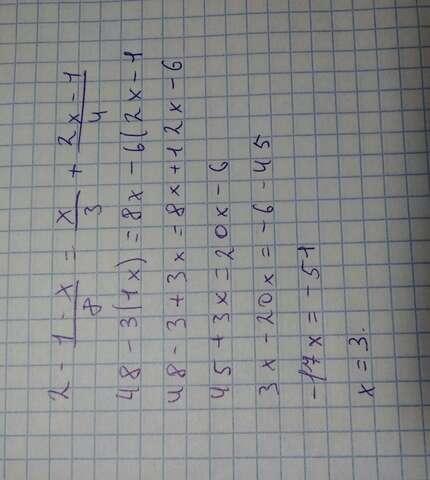 2 - 1 - x / 8 = x / 3 + 2x - 1 / 4
48 - 3(1x) = 8x - 6(2x - 1
48 - 3 + 3x = 8x + 12x - 6
45 + 3x = 20x - 6
3x - 20x = -6 - 45
-17x = -51
x = 3.